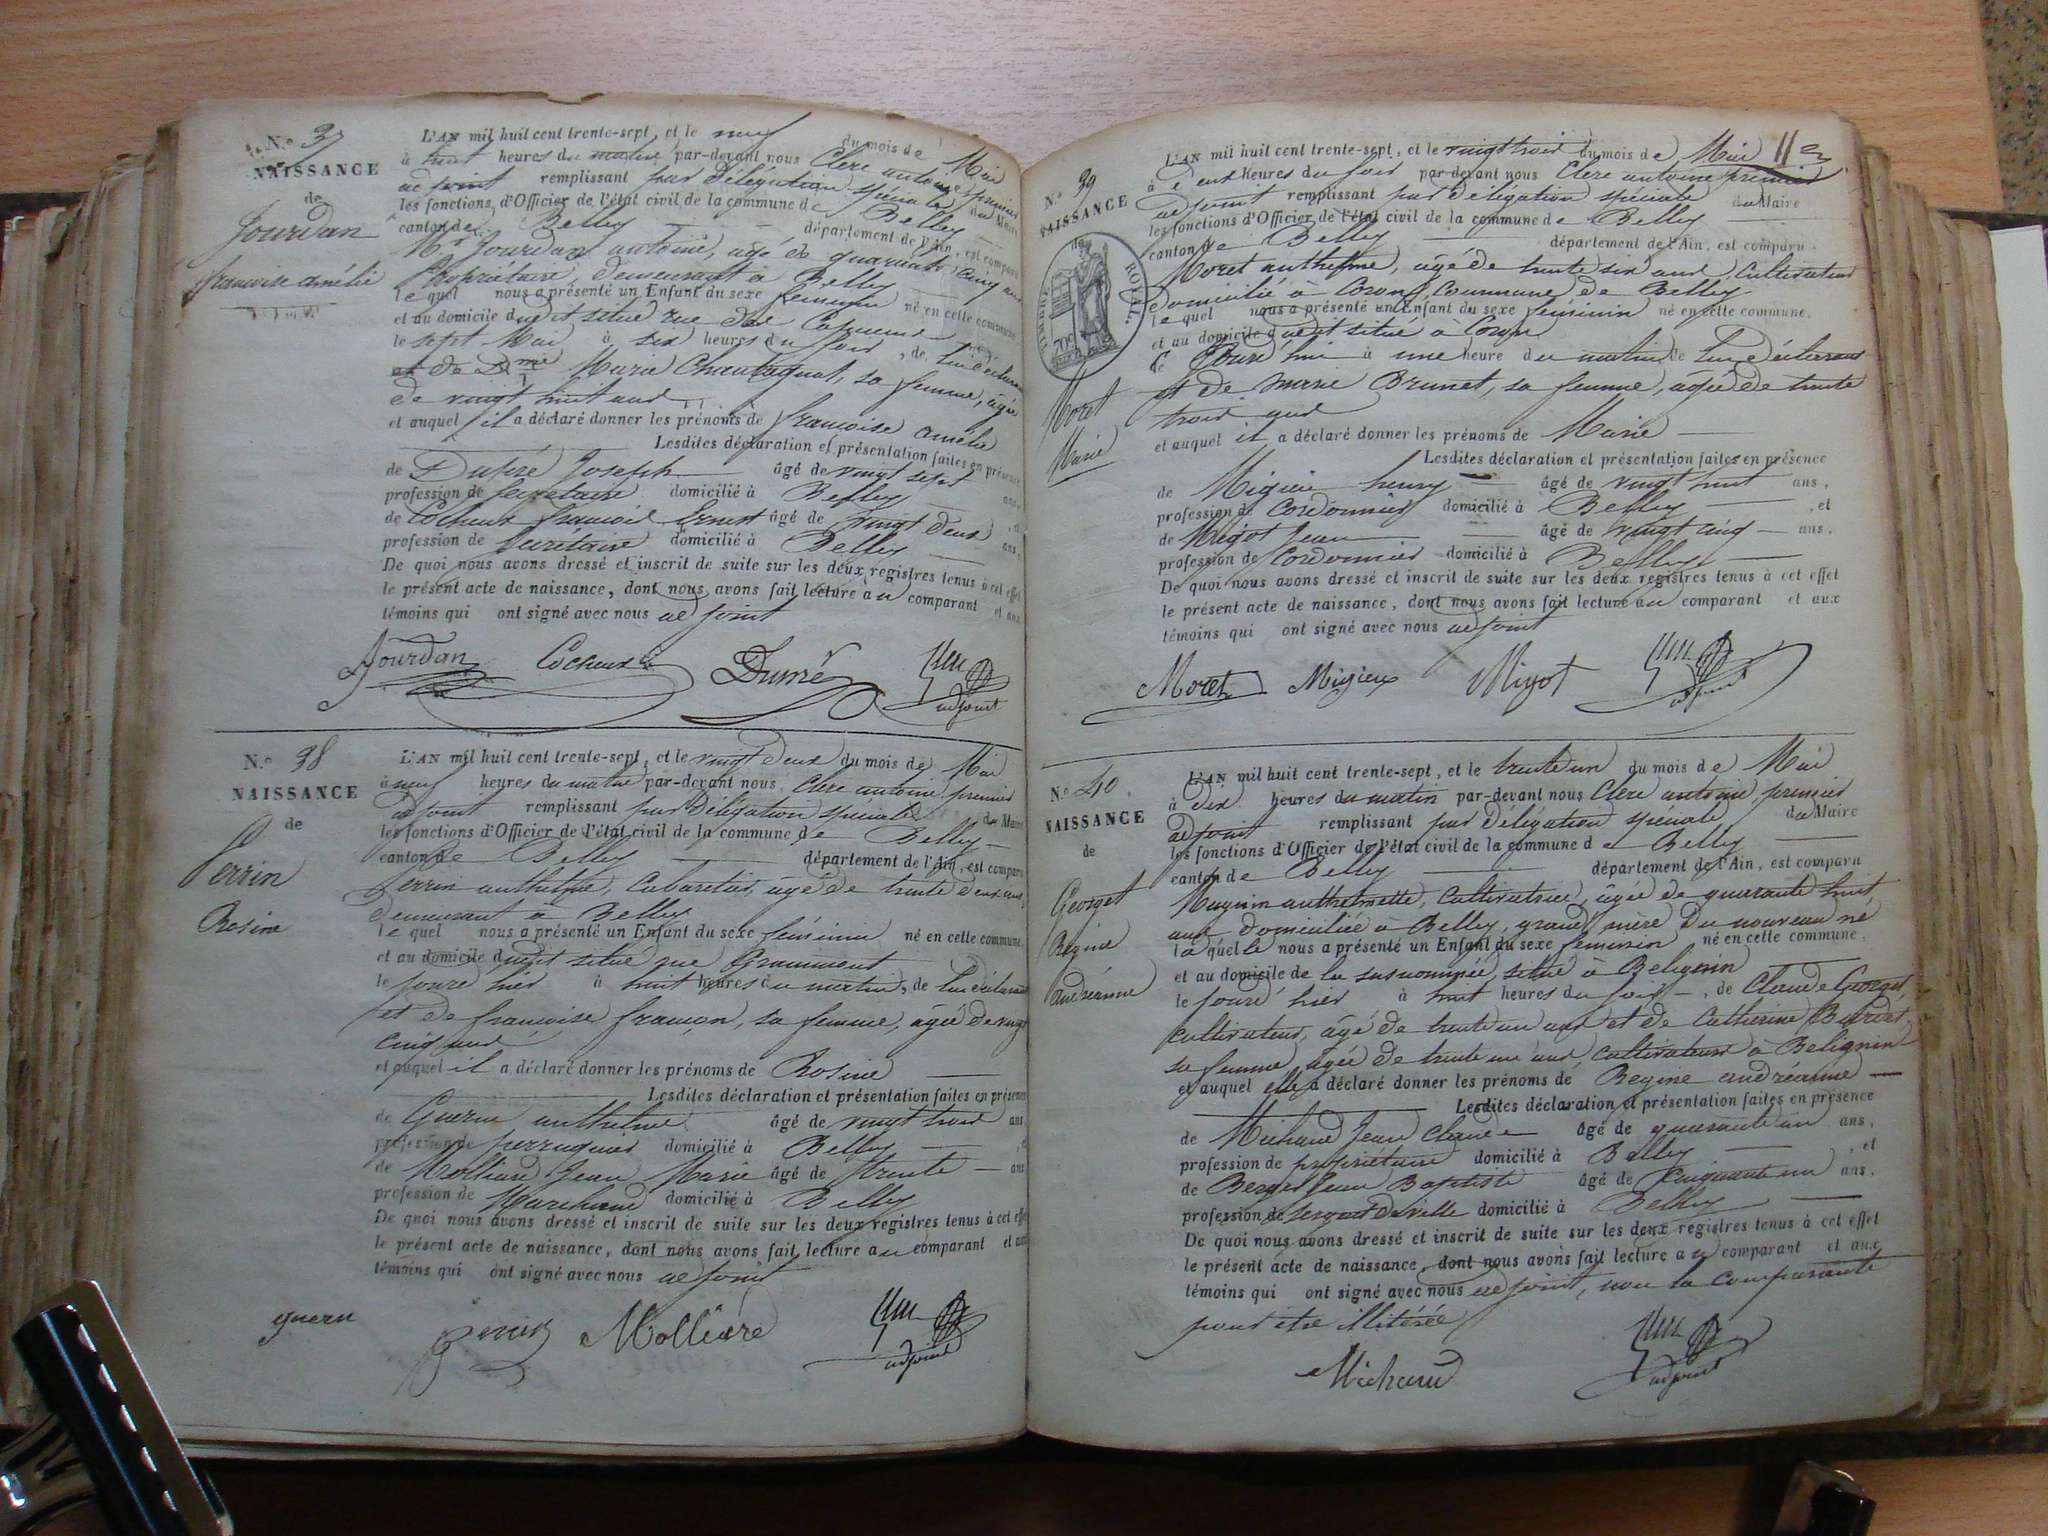 N.º 37
NAISSANCE
de
Jourdan
francoise amélie
L'AN mil huit cent trente-sept, et le neuf du mois de Mai
à huit heures du matin par-devant nous Clerc antoine premier
adjoint remplissant par délégation spéciale du Maire
les fonctions d'Officier de l'état civil de la commune de Belley
canton de Belley département de l'Ain, est comparu
Mr Jourdan antoine, agé de quarante cinq ans
Propriétaire, demeurant à Belley
le quel nous a présenté un Enfant du sexe feminin né en cette commune,
et au domicile dudit situé rue des Capucins
le sept Mai à six heures du soir, de lui déclarant
et de Dme Marie Chautaquat, sa femme, agée
de vingt huit ans
et auquel il a déclaré donner les prénoms de francoise amélie
Lesdites déclaration et présentation faites en présence
de Dupré Joseph âgé de vingt sept ans,
profession de secretaire domicilié à Belley, et
de Cocheux francois Ernest âgé de vingt deux ans,
profession de Secretaire domicilié à Belley
De quoi nous avons dressé et inscrit de suite sur les deux registres tenus à cet effet
le présent acte de naissance, dont nous avons fait lecture au comparant et aux
témoins qui ont signé avec nous adjoint
Jourdan Cocheux Dupré adjoint
N.º 38
NAISSANCE
de
Perrin
Rosine
L'AN mil huit cent trente-sept, et le vingt deux du mois de Mai
à neuf heures du matin par-devant nous Clerc antoine premier
adjoint remplissant par délégation spéciale du Maire
les fonctions d'Officier de l'état civil de la commune de Belley
canton de Belley département de l'Ain, est comparu
Perrin anthelme, Cabaretier, agé de trente deux ans,
demeurant à Belley
le quel nous a présenté un Enfant du sexe féminin né en cette commune,
et au domicile dudit situé rue Grammont
le jourd'hier à huit heures du matin, de lui déclarant
et de francoise framon, sa femme, agée de vingt
cinq ans
et auquel il a déclaré donner les prénoms de Rosine
Lesdites déclaration et présentation faites en présence
de Guerin anthelme âgé de vingt trois ans,
profession de perruquier domicilié à Belley, et
de Molliard Jean Marie âgé de trente ans
profession de Marchand domicilié à Belley
De quoi nous avons dressé et inscrit de suite sur les deux registres tenus à cet effet
le présent acte de naissance, dont nous avons fait lecture au comparant et aux
témoins qui ont signé avec nous adjoint
guerin Perrin Molliard adjoint
11
N.º 39
NAISSANCE
de
TIMBRE ROYAL.
70c
Moret
Marie
L'AN mil huit cent trente-sept, et le vingt trois du mois de Mai
à deux heures du soir par-devant nous Clerc antoine premier
adjoint remplissant par délégation spéciale du Maire
les fonctions d'Officier de l'état civil de la commune de Belley
canton de Belley département de l'Ain, est comparu
Moret anthelme, agé de trente six ans, Cultivateur
domicilié à Coron, Commune de Belley
le quel nous a présenté un Enfant du sexe féminin né en cette commune,
et au domicile dudit situé à Coron
le Jourd'hui à une heure du matin de lui déclarant
et de marie Brunet, sa femme, agée de trente
trois ans
et auquel il a déclaré donner les prénoms de Marie
Lesdites déclaration et présentation faites en présence
de Migieu henry âgé de vingt huit ans,
profession de Cordonnier domicilié à Belley, et
de Migot Jean âgé de vingt cinq ans,
profession de Cordonnier domicilié à Belley
De quoi nous avons dressé et inscrit de suite sur les deux registres tenus à cet effet
le présent acte de naissance, dont nous avons fait lecture au comparant et aux
témoins qui ont signé avec nous adjoint
Moret Migieux Migot adjoint
N.º 40
NAISSANCE
de
Georget
Regine
andréanne
L'AN mil huit cent trente-sept, et le trente un du mois de Mai
à dix heures du matin par-devant nous Clerc antoine, premier
adjoint remplissant par délégation spéciale du Maire
les fonctions d'Officier de l'état civil de la commune de Belley
canton de Belley département de l'Ain, est comparu
Mugnin anthelmette, Cultivatrice, agée de quarante huit
ans domiciliée à Belley, grand mère du nouveau né
la quelle nous a présenté un Enfant du sexe feminin né en cette commune,
et au domicile de la susnommée, situé à Belignin
le jourd'hier à huit heures du soir, de Claude Georget
cultivateur, agé de trente un ans et de Catherine Burdet,
sa femme agée de trente un ans cultivateurs à Belignin
et auquel elle a déclaré donner les prénoms de Regine andréanne
Lesdites déclaration et présentation faites en présence
de Michaud Jean Claude âgé de quarante un ans,
profession de propriétaire domicilié à Belley, et
de Berger Jean Baptiste âgé de Cinquante un ans,
profession de sergent de ville domicilié à Belley
De quoi nous avons dressé et inscrit de suite sur les deux registres tenus à cet effet
le présent acte de naissance, dont nous avons fait lecture au comparant et aux
témoins qui ont signé avec nous adjoint, non la comparante
pour être illitérée
Michaud adjoint